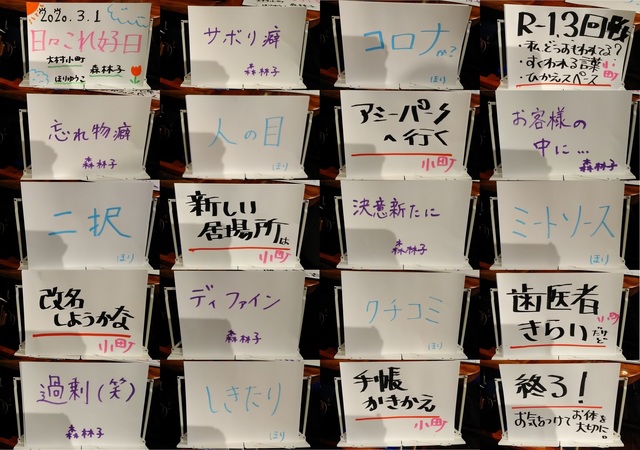 2020.3.1
日々これ好日
大村小町
森林子
ほりゆうこ
サボリ癖
森林子
コロナか?
ほり
R-1 3回戦
・私どうおもわれてる?
・すくわれる言葉
・ひかえスペース
小町
忘れ物癖
森林子
人の目
ほり
アミーパーク
へ行く
小町
お客様の
中に…
森林子
二択
ほり
新しい
居場所は
小町
決意新たに
森林子
ミートソース
ほり
改名
しようかな
小町
ディファイン
森林子
クチコミ
ほり
歯医者
きらいだけど
小町
過剰(笑)
森林子
しきたり
ほり
手帳
かきかえ
小町
終了!
お気をつけて
お体を
大切に。